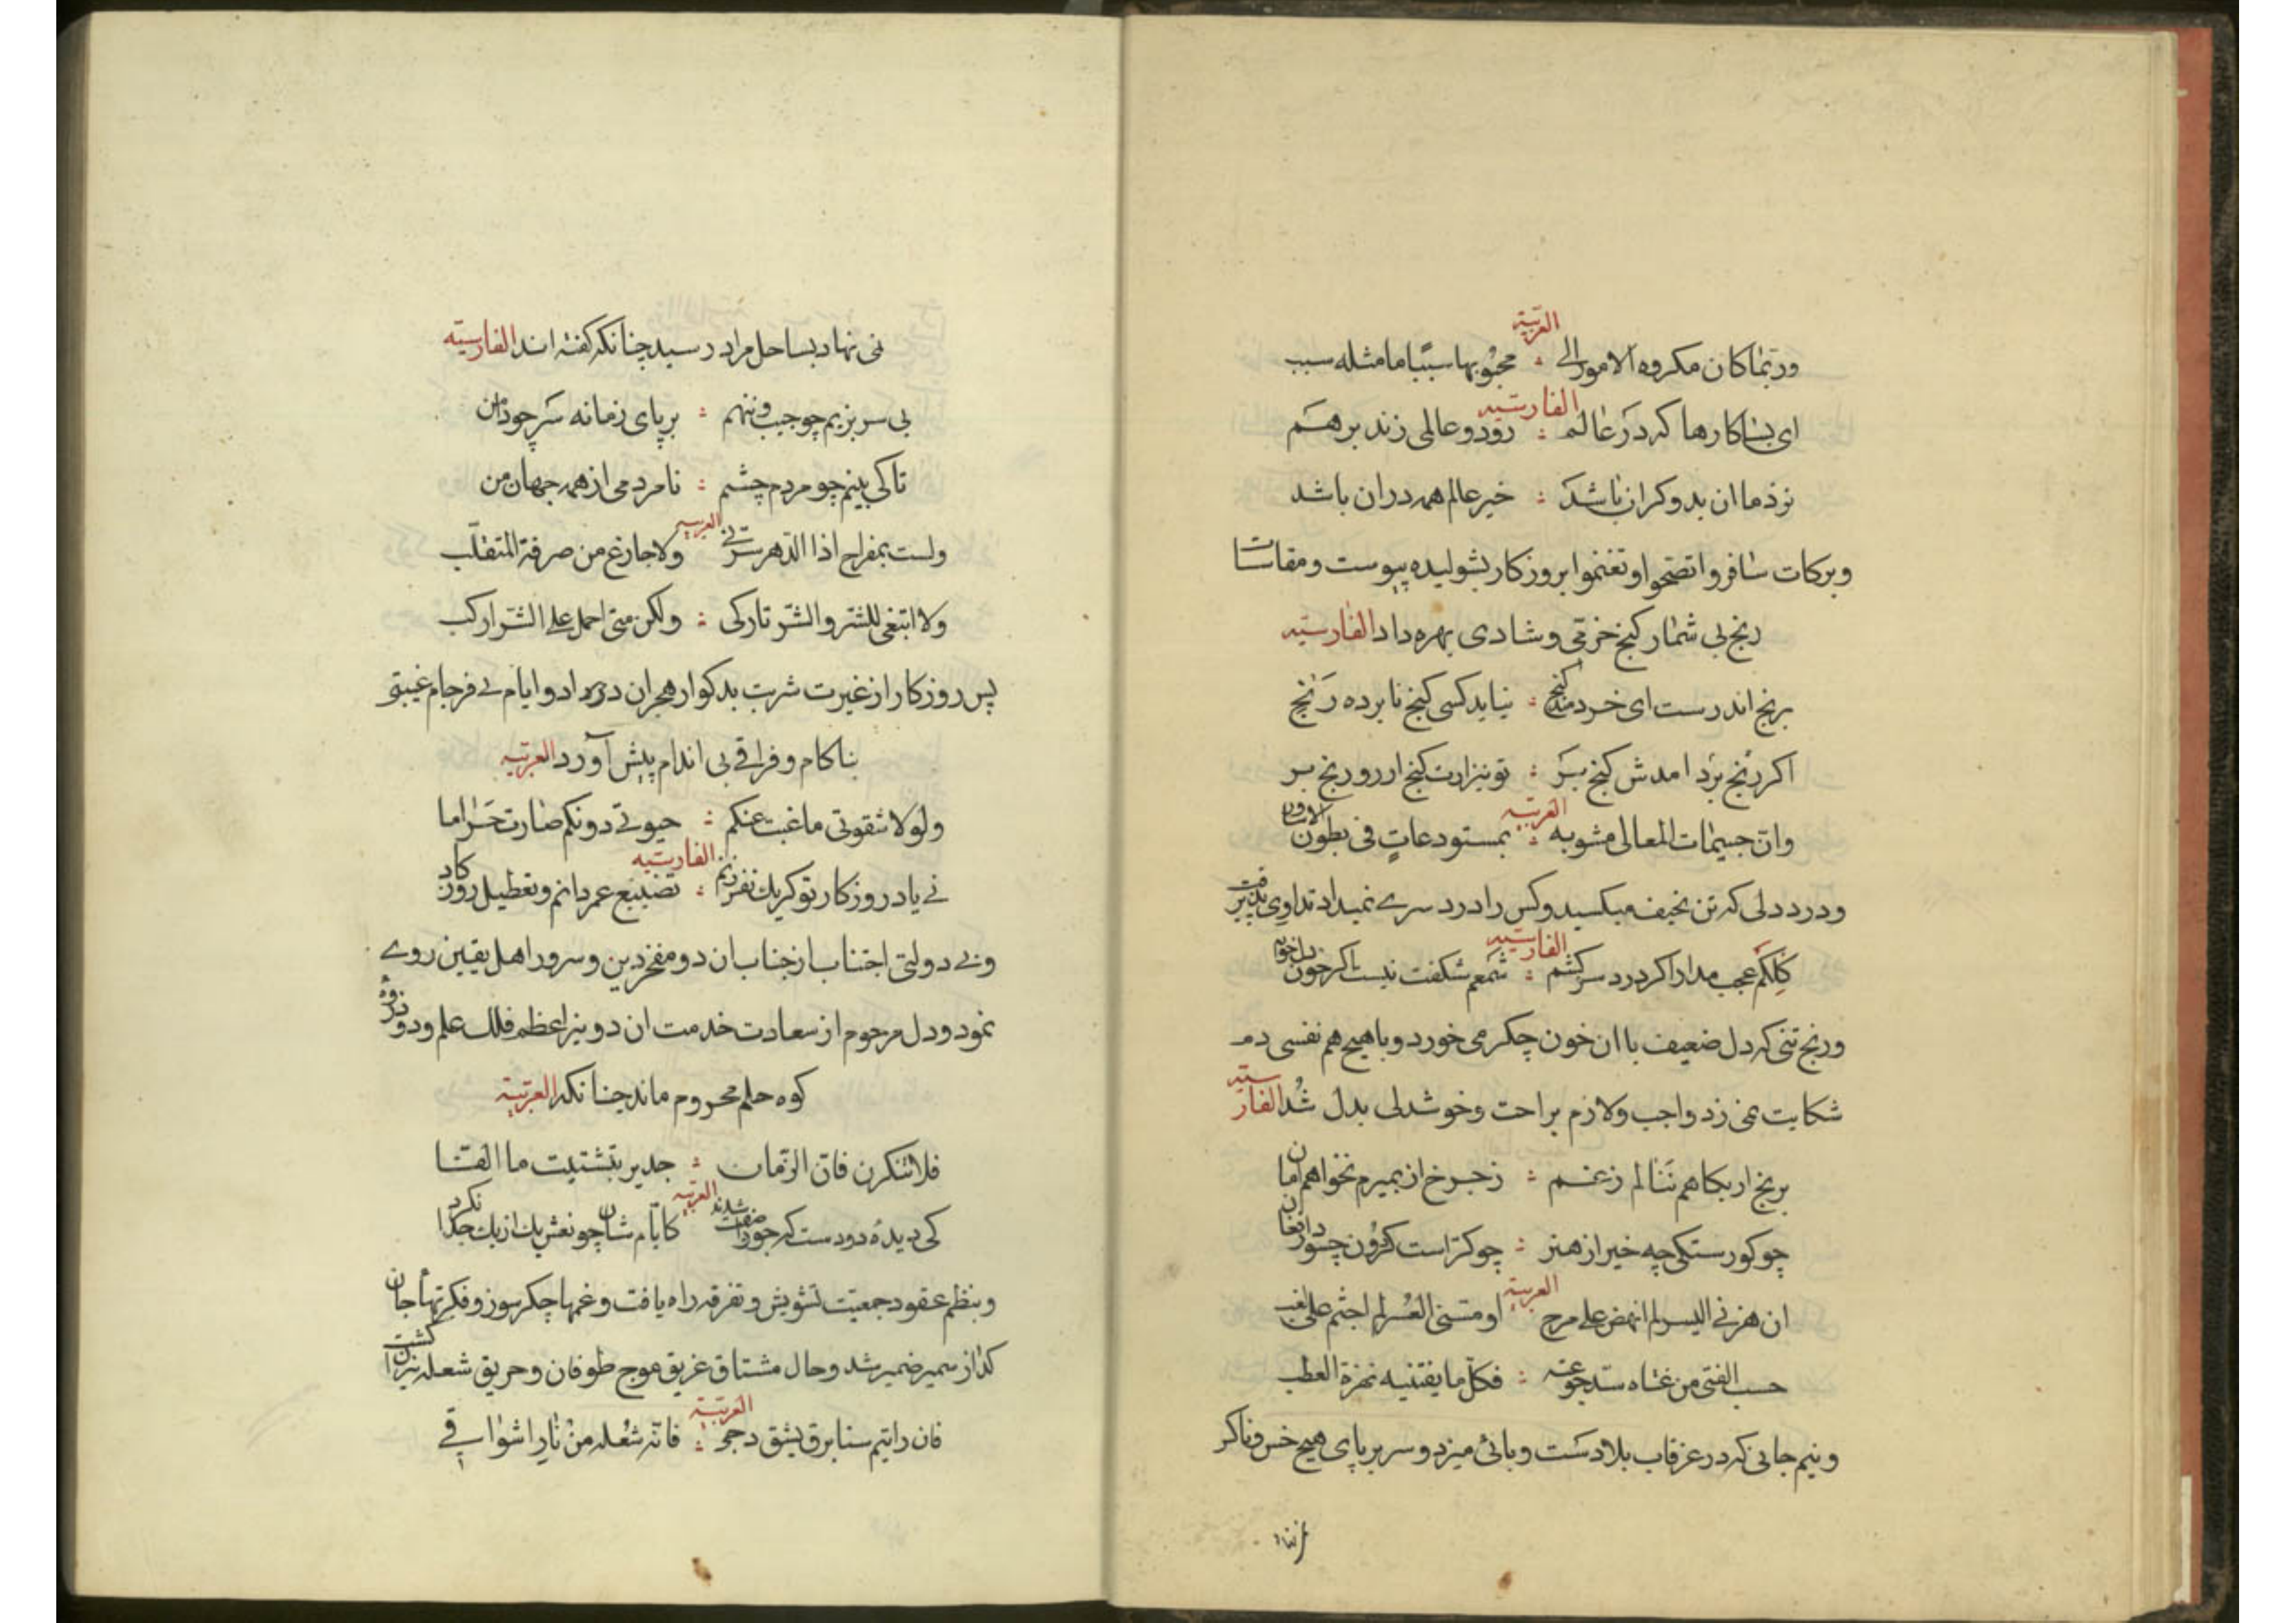 العربیّة
وربّما کان مکروه الامور الی : محبوبها سببًا ما مثله سبب
الفارسیّه
ای بسا کارها که در عالم : رود و عالمی زند برهم
نزد ما ان بد و کران باشد : خیر عالم همه دران باشد
وبرکات سافروا تصّحوا وتغنموا بروزکار بشولیده پیوست ومقاسات
رنج بی شمار کنج خرّمی و شادی بهره داد الفارسیّه
برنج اندرست ای خردمند کنج : نیابد کسی کنج نابرده رنج
اکر رنج برد امدش کنج بر : تو نیز ارت کنج ارزو رنج بر
العربیّه
وانّ جسیمات المعالی مشوبه : بمستودعاتٍ فی بطون الاساود
ودرد دلی که تن نحیف میکسید وکس را درد سرے نمیداد تداوی پذیرفت
الفارسیّه
کلکم عجب مدار اکر درد سر کشم : شمعم شکفت نیست اکر خون دل خورم
ورنج تنی که دل ضعیف با ان خون چکر می خورد و با هیچ هم نفسی دم
شکایت نمی زد واجب ولازم براحت وخوشدلی بدل شد الفارسیّه
برنج ار بکاهم ننالم زغم : زجرخ ار بمیرم نخواهم امان
چو کورست کیتی چه خیر از هنر : چو کرّاست کردون چسود از فغان
العربیة
ان هزنی الیسر لم انهض علی مرح : او مسّنی العسر لم اجثم علی
حسب الفتی من غناه سدّ جوعته : فکلّ ما یقتنیه نهزة العطب
ونیم جانی که در غرقاب بلا دست وپائی میزد و سر بر پای هیچ خس وناکر
نی نهاد بساحل مراد رسید چنانکه کفته اند الفارسیّه
بی سر بزیم چو جیب وننهم : بر پای زمانه سر چو دامن
تاکی بینم چو مردم چشم : نامردمی از همه جهان من
العربیه
ولست بمفراح اذا الدّهر سرّنی : ولا جازع من صرفة المتقلّب
ولا ابتغی للشّر والشّر تارکی : ولکن متی احمل علی الشّر ارکب
پس روزکار از غیرت شربت بدکوار هجران در داد وایام بے فرجام غیبتی
بناکام وفراقی بی اندام پیش آورد العربیّه
ولولا شقوتی ما غبت عنکم : حیوتی دونکم صارت حراما
الفارسیّه
بے یاد روزکار تو کر یك نفس زنم : تضییع عمر دانم وتعطیل روزکار
وبے دولتی اجتناب از جناب ان دو مفخر دین وسرور اهل یقین روے
نمود ودل مرحوم از سعادت خدمت ان دو نیر اعظم فلك علم ودو ذروهٔ
کوه حلم محروم ماند چنانکه العربیّة
فلا تنکرن فانّ الزمان : جدیر بتشتیت ما الفتا
العربیّه
کی دیدهٔ دو دست که جوزا صفت شدند : کایّام شان چو نعش یك از یك جدا نکرد
وبنظم عقود جمعیّت تشویش و تفرقه راه یافت وغمها چکرسوز وفکرتها جان
کداز سمیر ضمیر شد وحال مشتاق غریق موج طوفان وحریق شعله نیران کشت
العربیّة
فان رایتم سنا برق یشق دجی : فانّه شعله من نار اشواقی